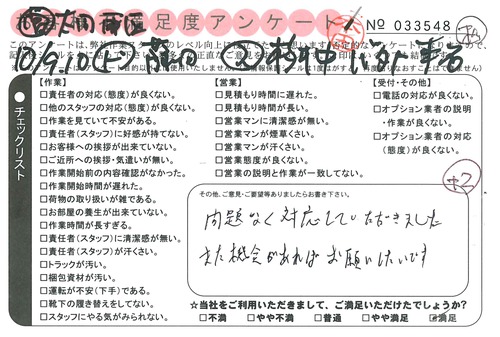 満足度アンケート
No 033548
□チェックリスト
【作業】
□責任者の対応(態度)が良くない。
□他のスタッフの対応(態度)が良くない。
□作業を見ていて不安がある。
□責任者(スタッフ)に好感が持てない。
□お客様への挨拶が出来ていない。
□ご近所への挨拶・気遣いが無い。
□作業開始前の内容確認がなかった。
□作業開始時間が遅れた。
□荷物の取り扱いが雑である。
□お部屋の養生が出来ていない。
□作業時間が長すぎる。
□責任者(スタッフ)に清潔感が無い。
□責任者(スタッフ)が汗くさい。
□トラックが汚い。
□梱包資材が汚い。
□運転が不安(下手)である。
□靴下の履き替えをしてない。
□スタッフにやる気がみられない。
【営業】
□見積もり時間に遅れた。
□見積もり時間が長い。
□営業マンに清潔感が無い。
□営業マンが煙草くさい。
□営業マンが汗くさい。
□営業態度が良くない。
□営業の説明と作業が一致してない。
【受付・その他】
□電話の対応が良くない。
□オプション業者の説明
・作業が良くない。
□オプション業者の対応
(態度)が良くない。
+2
その他、ご意見・ご要望等ありましたらお書き下さい。
問題なく対応していただきました
また機会があればお願いしたいです
☆当社をご利用いただきまして、ご満足いただけたでしょうか?
□不満 □やや不満 □普通 □やや満足 ☑満足